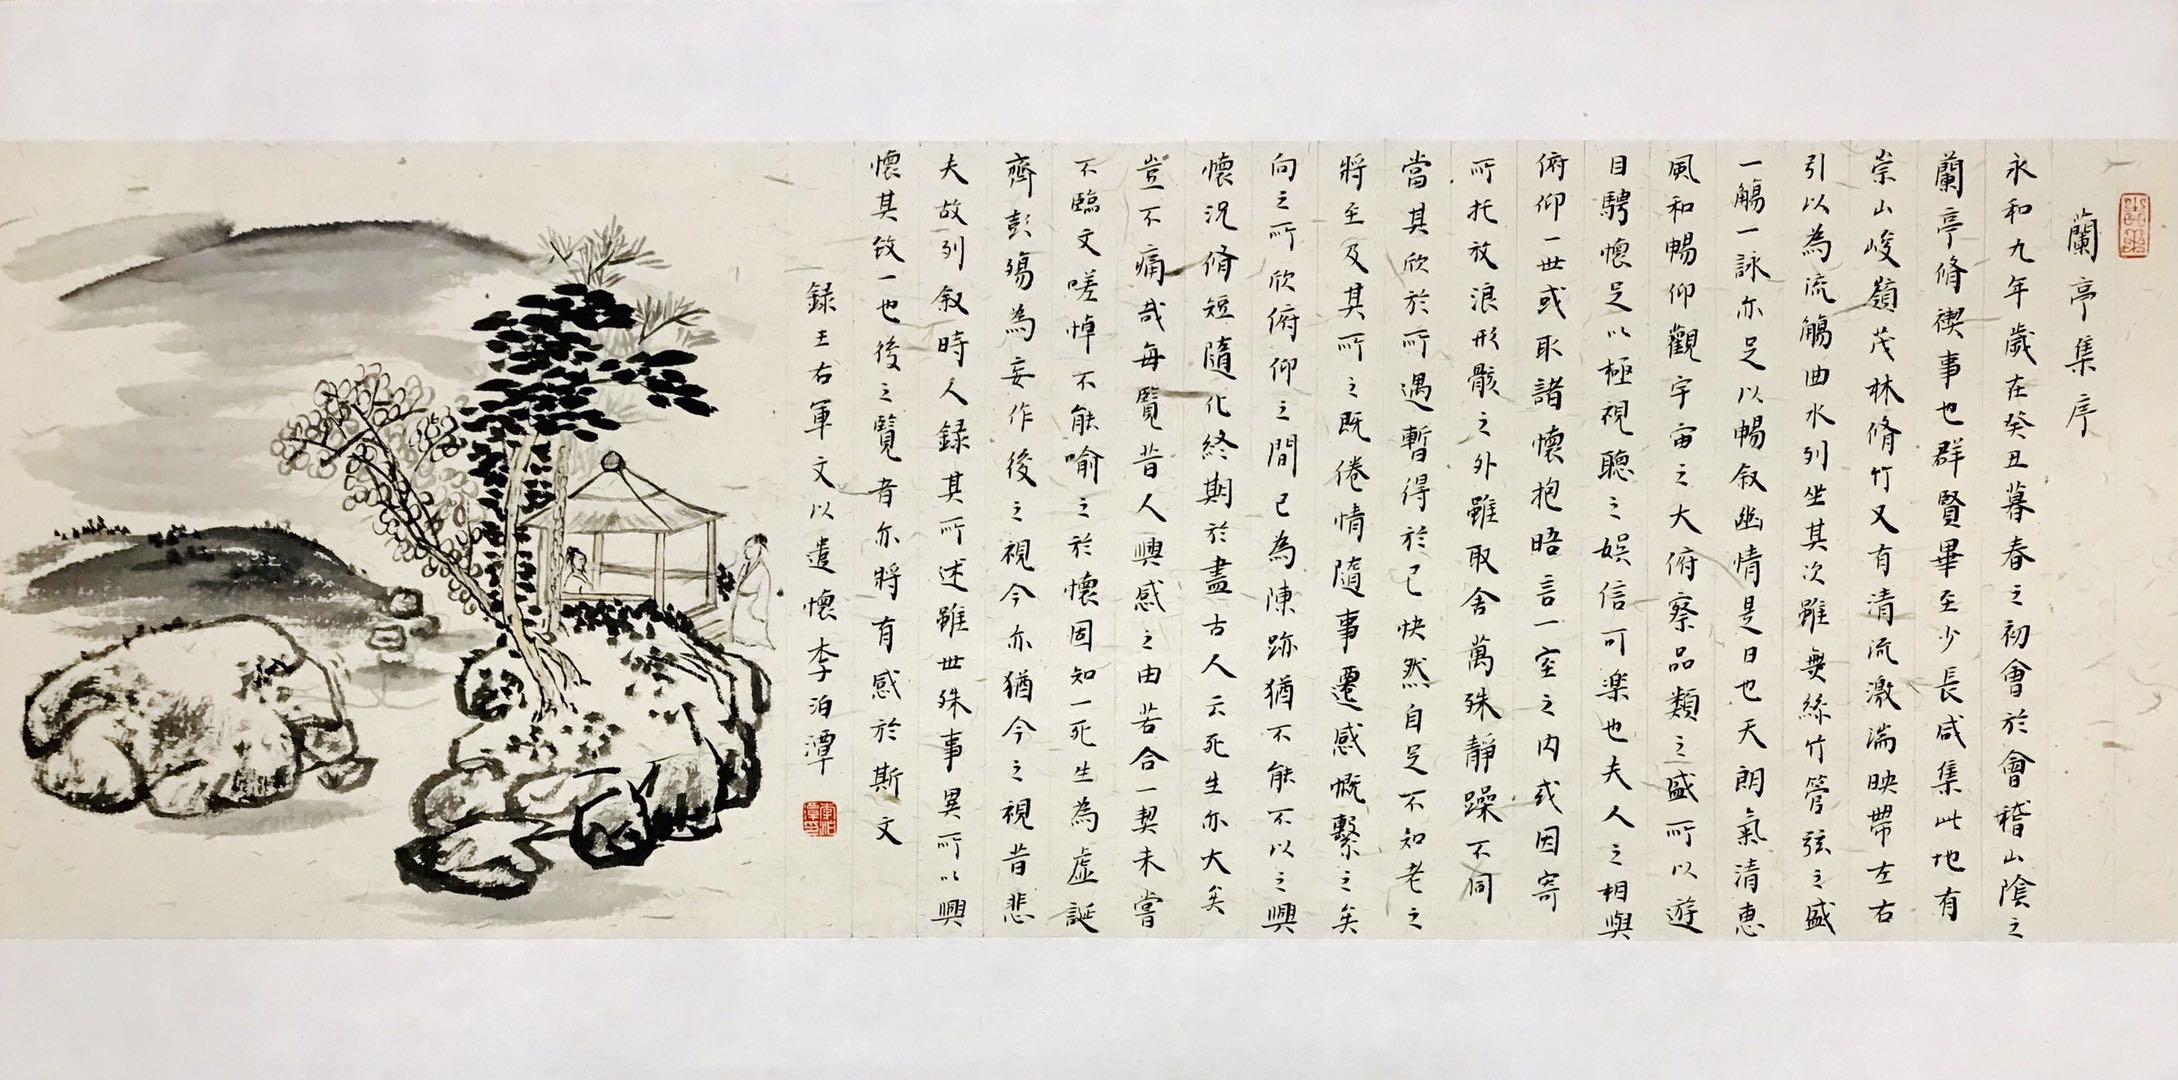 蘭亭集序
永和九年歲在癸丑暮春之初會於會稽山陰之
蘭亭脩禊事也群賢畢至少長咸集此地有
崇山峻嶺茂林脩竹又有清流激湍映帶左右
引以為流觴曲水列坐其次雖無絲竹管弦之盛
一觴一詠亦足以暢叙幽情是日也天朗氣清惠
風和暢仰觀宇宙之大俯察品類之盛所以遊
目騁懷足以極視聽之娛信可樂也夫人之相與
俯仰一世或取諸懷抱晤言一室之內或因寄
所托放浪形骸之外雖取舍萬殊靜躁不同
當其欣於所遇暫得於己快然自足不知老之
將至及其所之既倦情隨事遷感慨繫之矣
向之所欣俯仰之間已為陳跡猶不能不以之興
懷況脩短隨化終期於盡古人云死生亦大矣
豈不痛哉每覽昔人興感之由若合一契未嘗
不臨文嗟悼不能喻之於懷固知一死生為虛誕
齊彭殤為妄作後之視今亦猶今之視昔悲
夫故列叙時人録其所述雖世殊事異所以興
懷其致一也後之覽者亦將有感於斯文
録王右軍文以遣懷李泊潭
李泊潭印